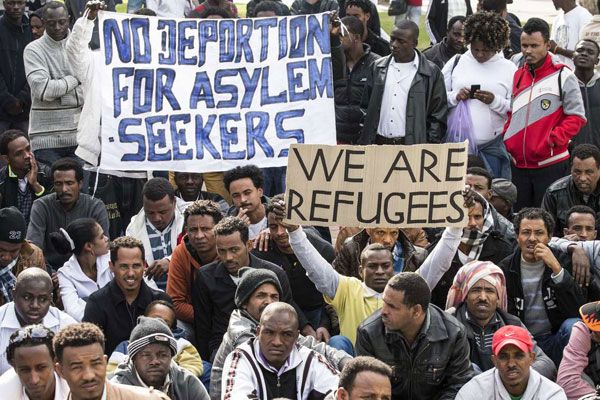 NO DEPORTION
FOR ASYLEM
SEEKERS
WE ARE
REFUGEES